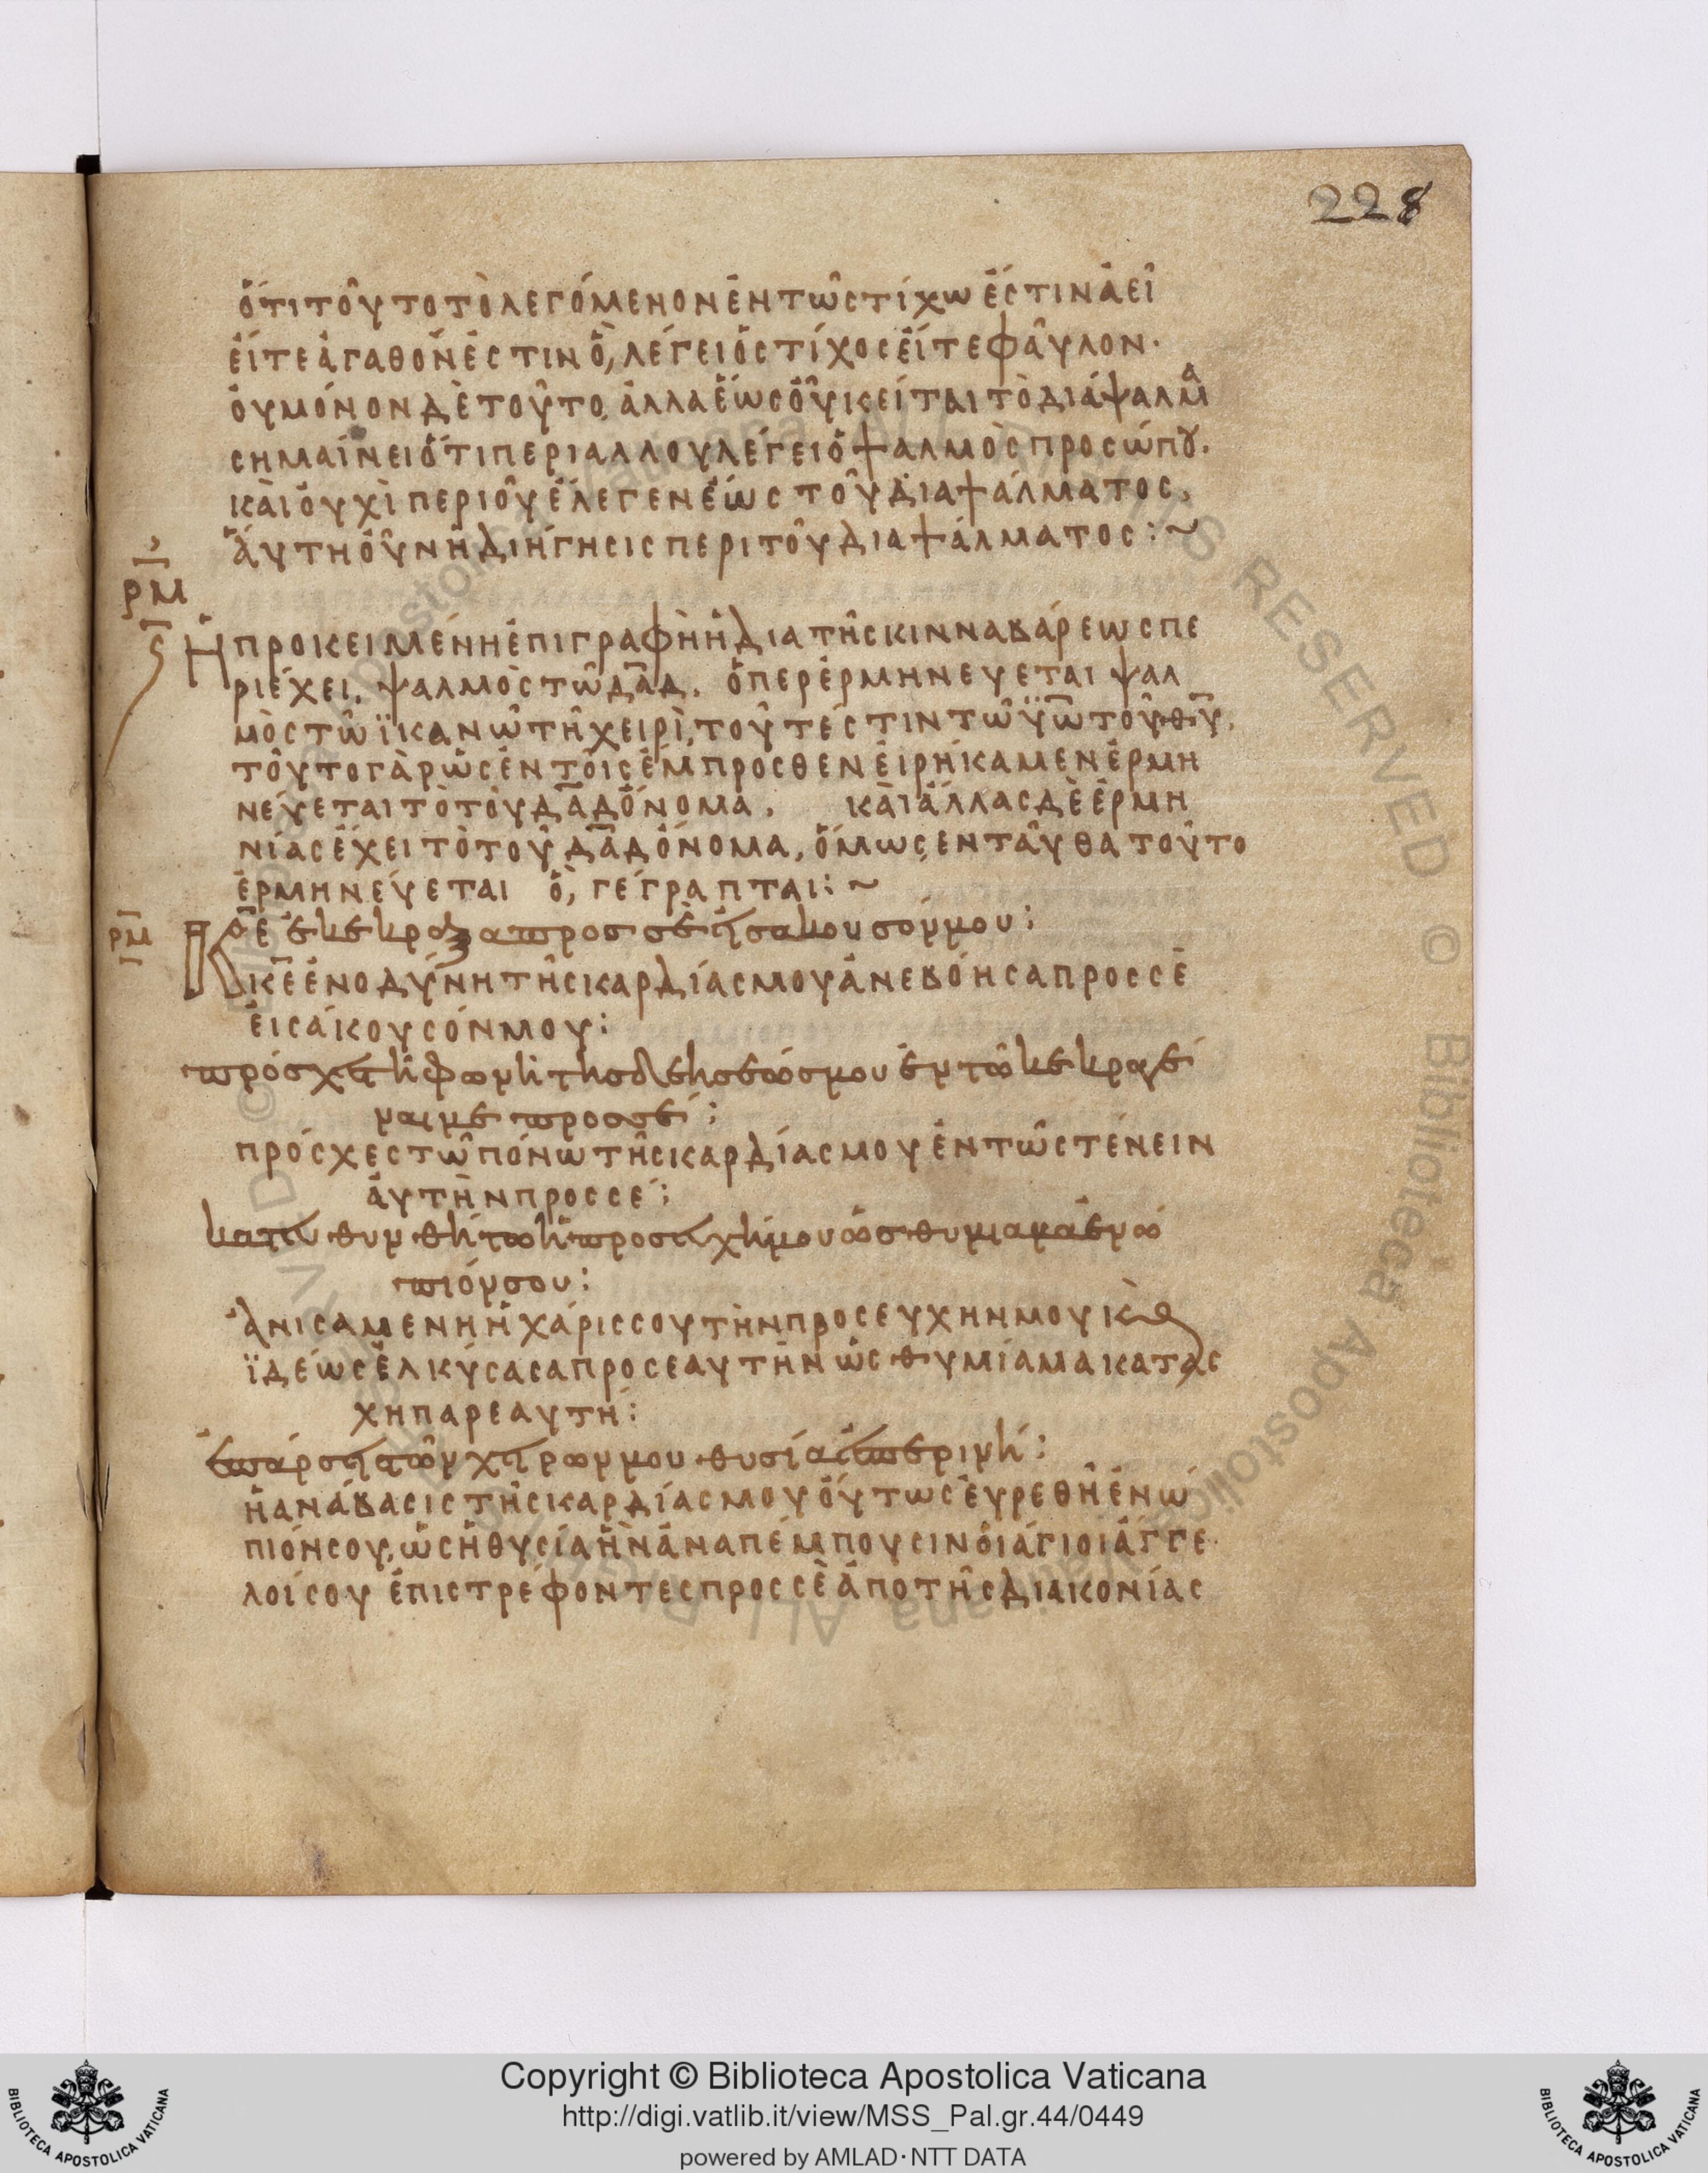 228
ὅτι τοῦτο τὸ λεγόμενον ἐν τῶ στίχω ἐστιν ἀεὶ
εἴτε ἀγαθον ἐστιν ὃ, λέγει ὁ στίχος εἴτε φαῦλον·
ὀυμόνον δὲ τοῦτο, ἀλλα ἕως οὗ κεῖται τὸ διάψαλμα
σημαίνει ὅτι περι αλλου λέγει ὁ ψαλμὸς προσώπου.
κὰι ὀυχὶ περι οὗ ἔλεγεν ἕως τοῦ διαψάλματος.
ἄυτη ὀῦν ἡ διήγησις περι τοῦ διαψάλματος:~
ρμ
Ἡ προκειμένη ἐπιγραφὴ ἡ δια τῆς κινναβάρεως πε
ριέχει. ψαλμὸς τῶ δαδ. ὅπερ ἑρμηνευεται ψαλ
μὸς τῶ ϊκανῶ τῆ χειρὶ, τοῦτέστιν τῶ ϋω τοῦ θυ.
τοῦτο γὰρ ὡς ἐν τοῖς ἔμπροσθεν ἐιρήκαμεν ἑρμη
νεύεται τὸ τοῦ δαδ ὄνομα. κὰι ἄλλας δὲ ἑρμη
νίας ἔχει τὸ τοῦ δαδ ὄνομα, ὅμως ἐνταῦθα τοῦτο
ἑρμηνεύεται ὃ, γέγραπται:~
ρμ
Κε ἐκεκραξα προσ σὲ ἐισακουσόν μου:
κε ἐν οδύνη τῆς καρδίας μου ἀνεβόησα προς σὲ
ἐισάκουσόν μου:
πρόσχες τη φωνη της δεησεώς μου ἐν τῶ κεκραγέ
ναι με προς σέ:
πρόσχες τῶ πόνω τῆς καρδίας μου ἐν τῶ στένειν
ἀυτὴν προς σέ:
κατευθυνθήτω ἡ προσευχή μου ὡς θυμιαμα ἐνώ
πιόν σου:
Ἀνισαμενη ἡ χάρις σου τὴν προσευχην μου κε
ϊδε ὡς ἑλκύσασα προς εαυτὴν ὡς θυμίαμα κατάς
χη παρ εαυτή:
ἔπαρσις τῶν χειρων μου θυσία ἑσπερινή:
ἡ ανάβασις τῆς καρδίας μου ὅυτως ἑυρεθῆ ἐνώ
πιόν σου, ὡς ἡ θυσία ἣν ἀναπέμπουσιν ὁι ἁγιοι ἄγγε
λοί σου ἐπιστρέφοντες προς σὲ ἀπο τῆς διακονίας
Copyright © Biblioteca Apostolica Vaticana
http://digi.vatlib.it/view/MSS_Pal.gr.44/0449
powered by AMLAD·NTT DATA
BIBLIOTECA APOSTOLICA VATICANA
BIBLIOTECA APOSTOLICA VATICANA